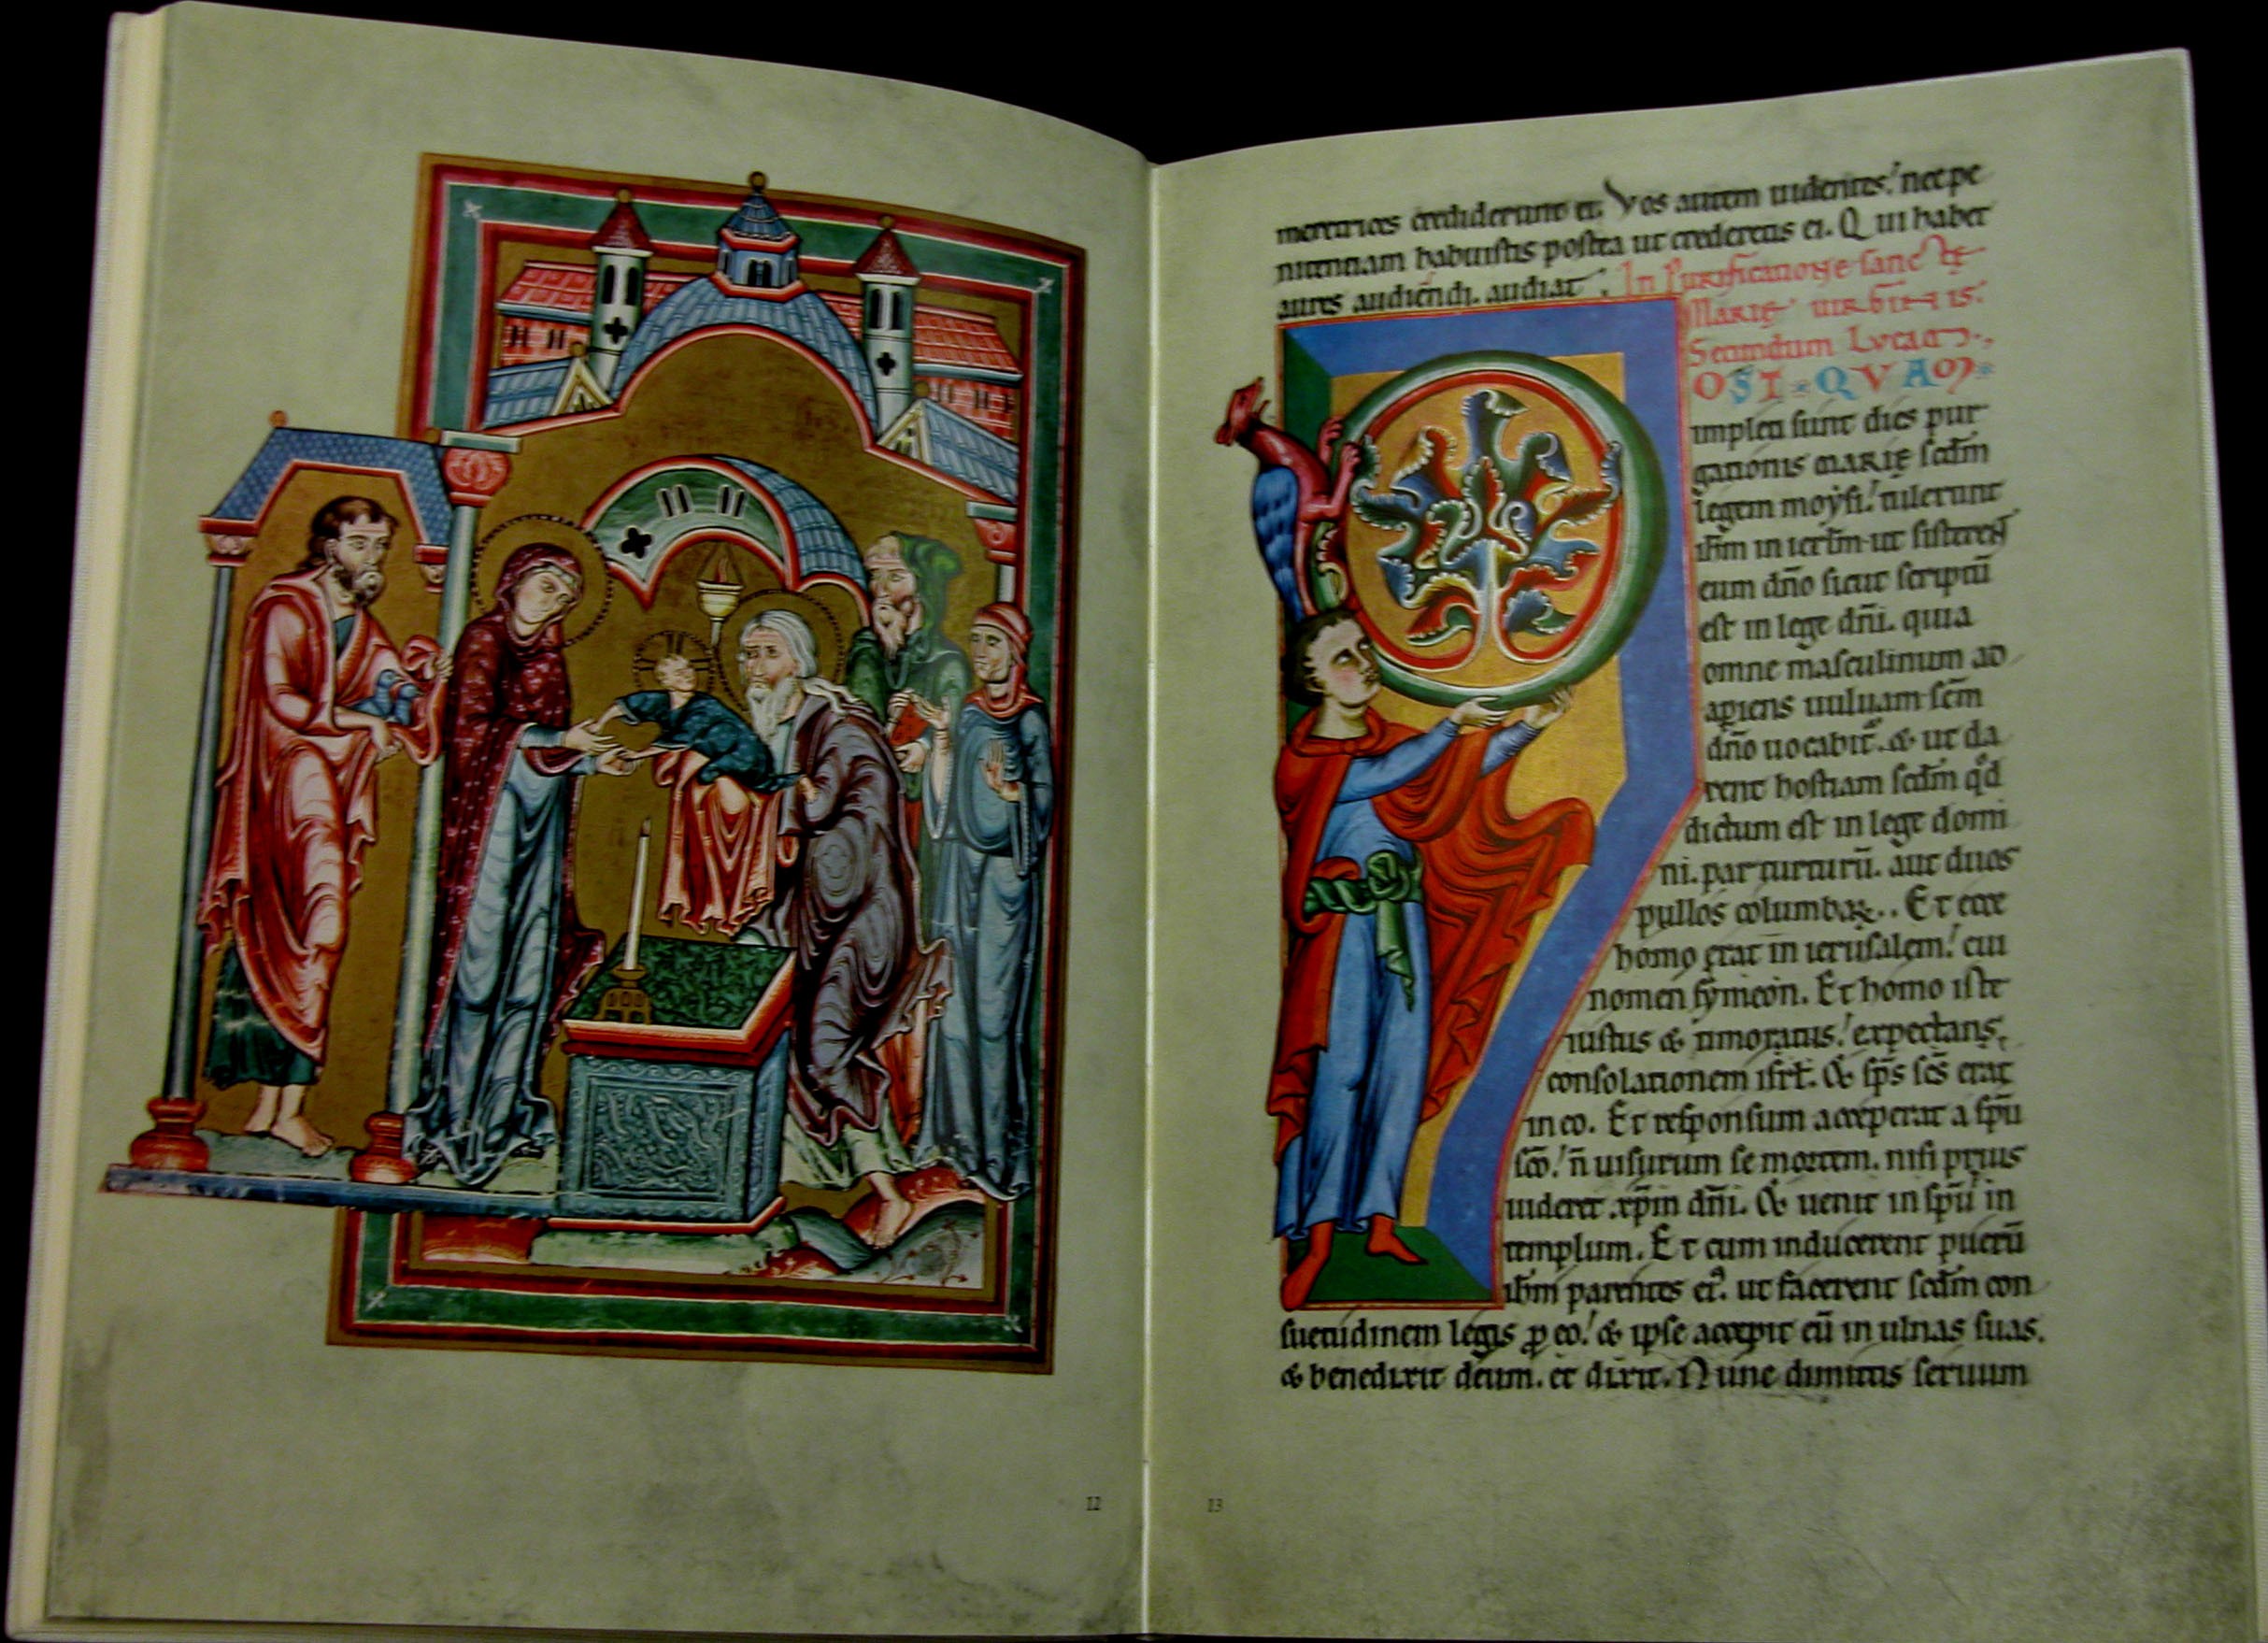 meretrices crediderunt ei. Vos autem uidentes! nec pe
nitentiam habuistis postea ut crederetis ei. Qui habet
aures audiendi. audiat. In Purificatione sanctę
Marię uirginis.
Secundum Lucam.
OST QVAM
impleti sunt dies pur
gationis marię scdm̄
legem moẏsi! tulerunt
ihm̄ in ierlm̄ ut sisterent
eum dn̄o sicut scriptū
est in lege dn̄i. quia
omne masculinum ad
apiens uuluam scm̄
dn̄o uocabit̄. & ut da
rent hostiam scdm̄ qd̄
dictum est in lege domi
ni. par turturū. aut duos
pullos columbaꝝ. Et ecce
homo erat in ierusalem! cui
nomen sẏmeon. Et homo iste
iustus & timoratus! expectans
consolationem isrl̄. & sp̄s sc̄s erat
in eo. Et responsum acceperat a sp̄u
sc̄o! n̄ uisurum se mortem. nisi prius
uideret xp̄m dn̄i. & uenit in sp̄u in
templum. Et cum inducerent puerū
ihm̄ parentes eiꝰ. ut facerent scdm̄ con
suetudinem legis ꝓ eo! & ipse accepit eū in ulnas suas.
& benedixit deum. et dixit. Nunc dimittis seruum
12
13